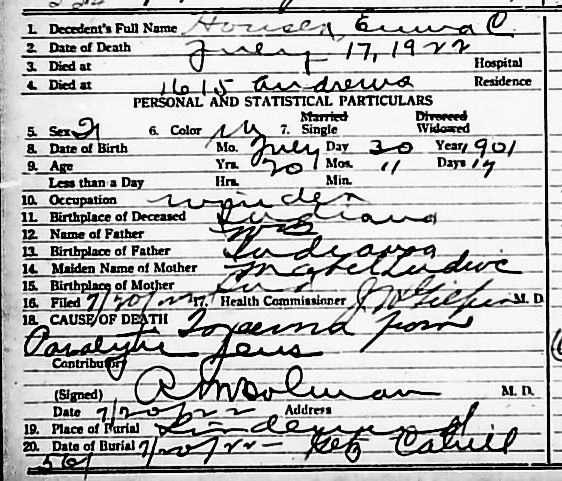 1. Decedent's Full Name Houser, Emma C
2. Date of Death July 17, 1922
3. Died at Hospital
4. Died at 1615 Andrews Residence
PERSONAL AND STATISTICAL PARTICULARS
Married Divorced
5. Sex 6. Color W 7. Single Widowed
8. Date of Birth Mo. July Day 30 Year 1901
9. Age Yrs. 20 Mos. 11 Days 17
Less than a Day Hrs. Min.
10. Occupation winder
11. Birthplace of Deceased Indiana
12. Name of Father Wm
13. Birthplace of Father Indiana
14. Maiden Name of Mother Mabel Ludwic
15. Birthplace of Mother Ind
16. Filed 7/20/22 17. Health Commissioner M. D.
18. CAUSE OF DEATH Toxaemia from
Paralytic Ileus
Contributory
(Signed) M. D.
Date 7/20/22 Address
19. Place of Burial Lindenwood
20. Date of Burial 7/20/22 Getz Cahill